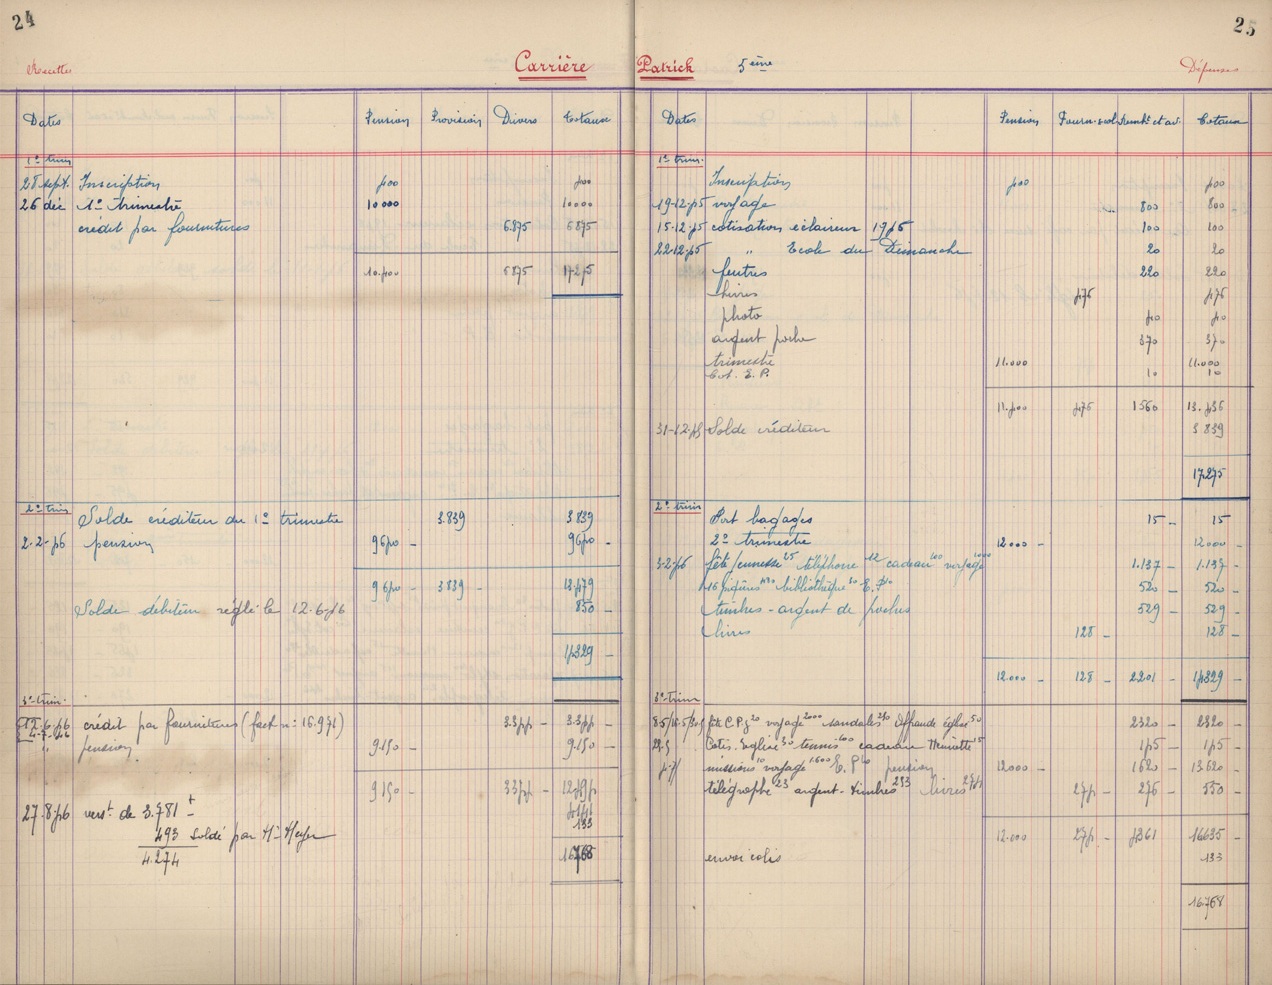 24
25
Recettes
Carrière Patrick 5ème
Dépenses
Dates Pension Provision Divers Totaux
1er trim
28 sept. Inscription 500 500
26 déc 1er trimestre 10000 10000
crédit par fournitures 6.875 6875
10.500 6875 17.275
2e trim
Solde créditeur du 1er trimestre 3.839 3839
2-2-56 pension 9650 - 9650 -
9650 - 3839 - 13.479
Solde débiteur réglé le 12-6-56 850 -
15329 -
3e trim.
12.6.56 crédit par fournitures (fact n: 16.951) 3.355 - 3.355 -
4-7-56 pension 9150 - 9.150 -
9150 - 3355 -
27.8.56 verst de 3.781 +
493 soldé par Mr Meyer 133
4.274
16768
Dates Pension Fourn. scol Remb. et av. Totaux
1er trim.
Inscription 500 500
19-12-55 voyage 800 800
15-12-55 cotisation éclaireur 1956 100 100
22-12-55 " Ecole du Dimanche 20 20
feutres 220 220
livres 476 476
photo 50 50
argent poche 370 370
trimestre 11.000 11.000
Cot. E. P. 10 10
11.500 476 1560 13.536
31-12-55 Solde créditeur 3839
17.275
2e trim
Port bagages 15 - 15
2e trimestre 12000 - 12000 -
3-2-56 fête jeunesse 25 téléphone 12 cadeau 100 voyage 1000 1.137 - 1.137 -
bibliothèque 520 - 520 -
timbres - argent de poches 529 - 529 -
livres 128 - 128 -
12.000 - 128 - 2201 - 15329 -
3e trim
voyage 2000 sandales 250 Offrande église 50 2320 - 2320 -
Cotis. Eglise 50 tennis cadeau Henriette 155 - 155 -
missions 10 voyage 1.600 pension 12000 - 1620 - 13.620 -
télégraphe 23 argent - timbres 253 livres 275 - 276 - 550 -
12.000 - 275 - 16635 -
envoi colis 133
16.768